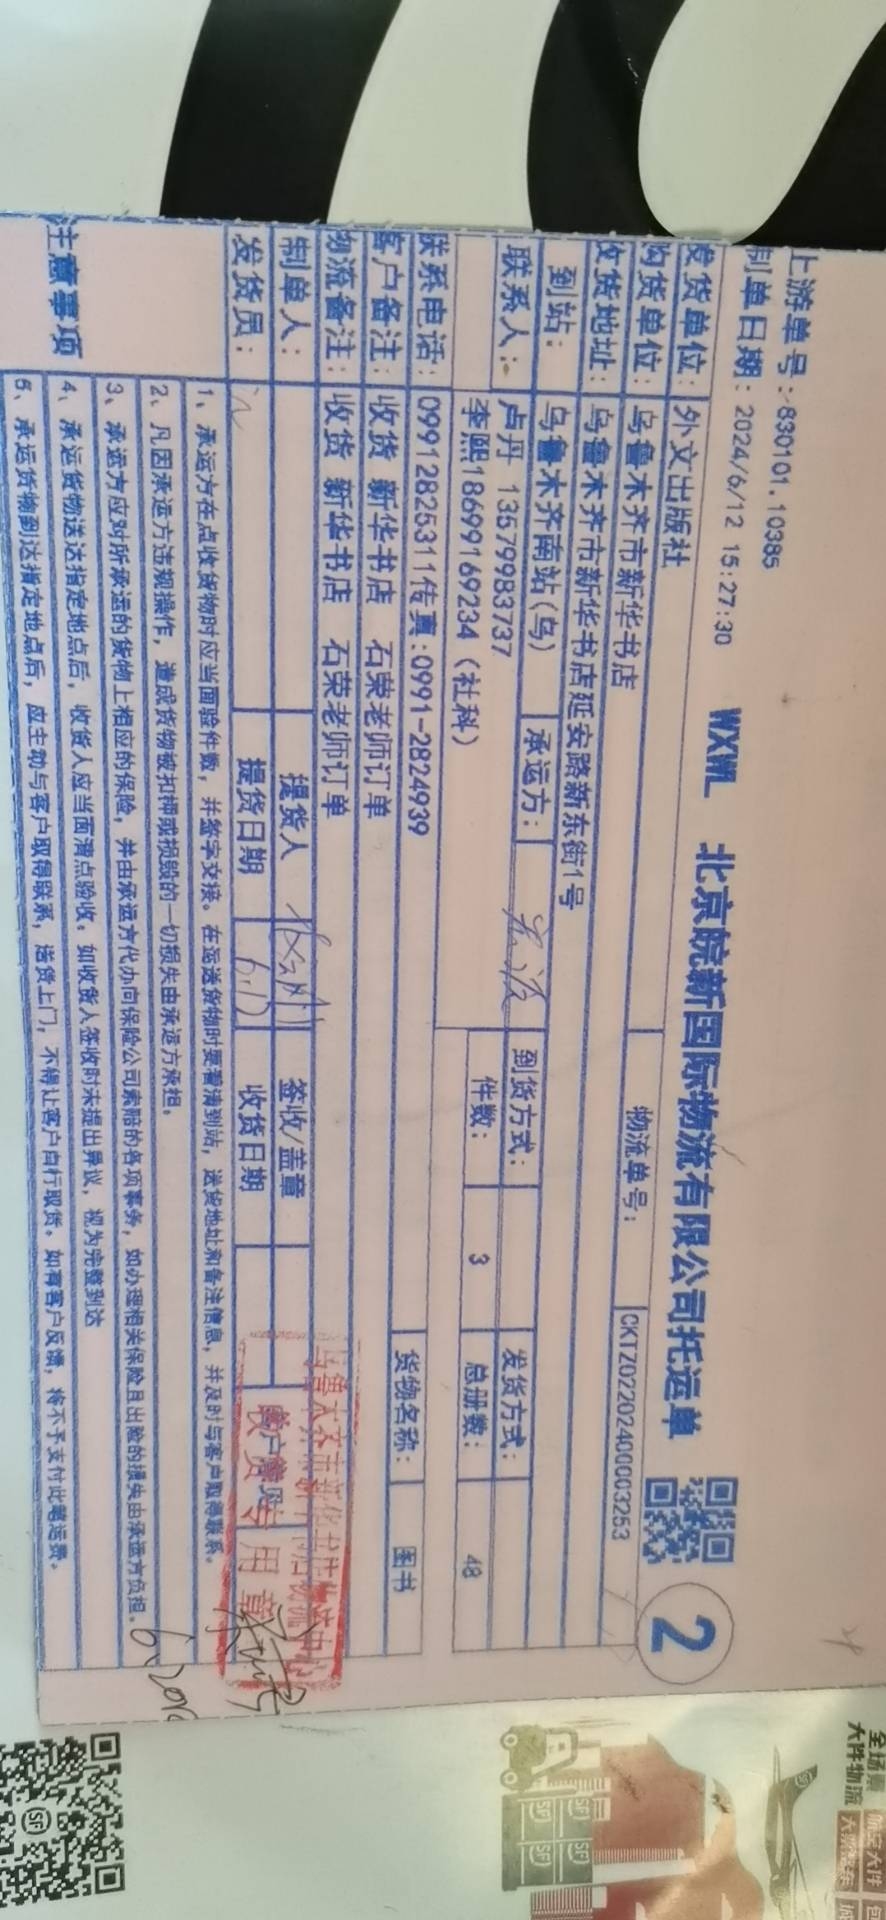 上游单号：830101.10385
制单日期：2024/6/12 15:27:30 WXWL 北京皖新国际物流有限公司托运单 2
发货单位：外文出版社
购货单位：乌鲁木齐市新华书店 物流单号： CKTZ02202400003253
收货地址：乌鲁木齐市新华书店延安路新东街1号
到站：乌鲁木齐南站(乌) 承运方： 到货方式： 发货方式：
联系人：卢丹 13579983737
李熙18699169234（社科） 件数： 3 总册数： 48
联系电话：09912825311传真：0991-2824939 货物名称： 图书
客户备注：收货 新华书店 石荣老师订单
物流备注：收货 新华书店 石荣老师订单
制单人： 提货人 签收/盖章
发货员： 提货日期 6.12 收货日期
乌鲁木齐市新华书店物流中心
收货专用章
注意事项
1、承运方在点收货物时应当面验件数，并签字交接。在运送货物时要看清到站，送货地址和备注信息，并及时与客户取得联系。
2、凡因承运方违规操作，造成货物被扣押或损毁的一切损失由承运方承担。
3、承运方应对所承运的货物上相应的保险，并由承运方代办向保险公司索赔的各项事务，如办理相关保险且出险的损失由承运方负担。
4、承运货物送达指定地点后，收货人应当面清点验收。如收货人签收时未提出异议，视为完整到达
5、承运货物到达指定地点后，应主动与客户取得联系，送货上门，不得让客户自行取货。如有客户反馈，将不予支付此笔运费。
大件物流
SF